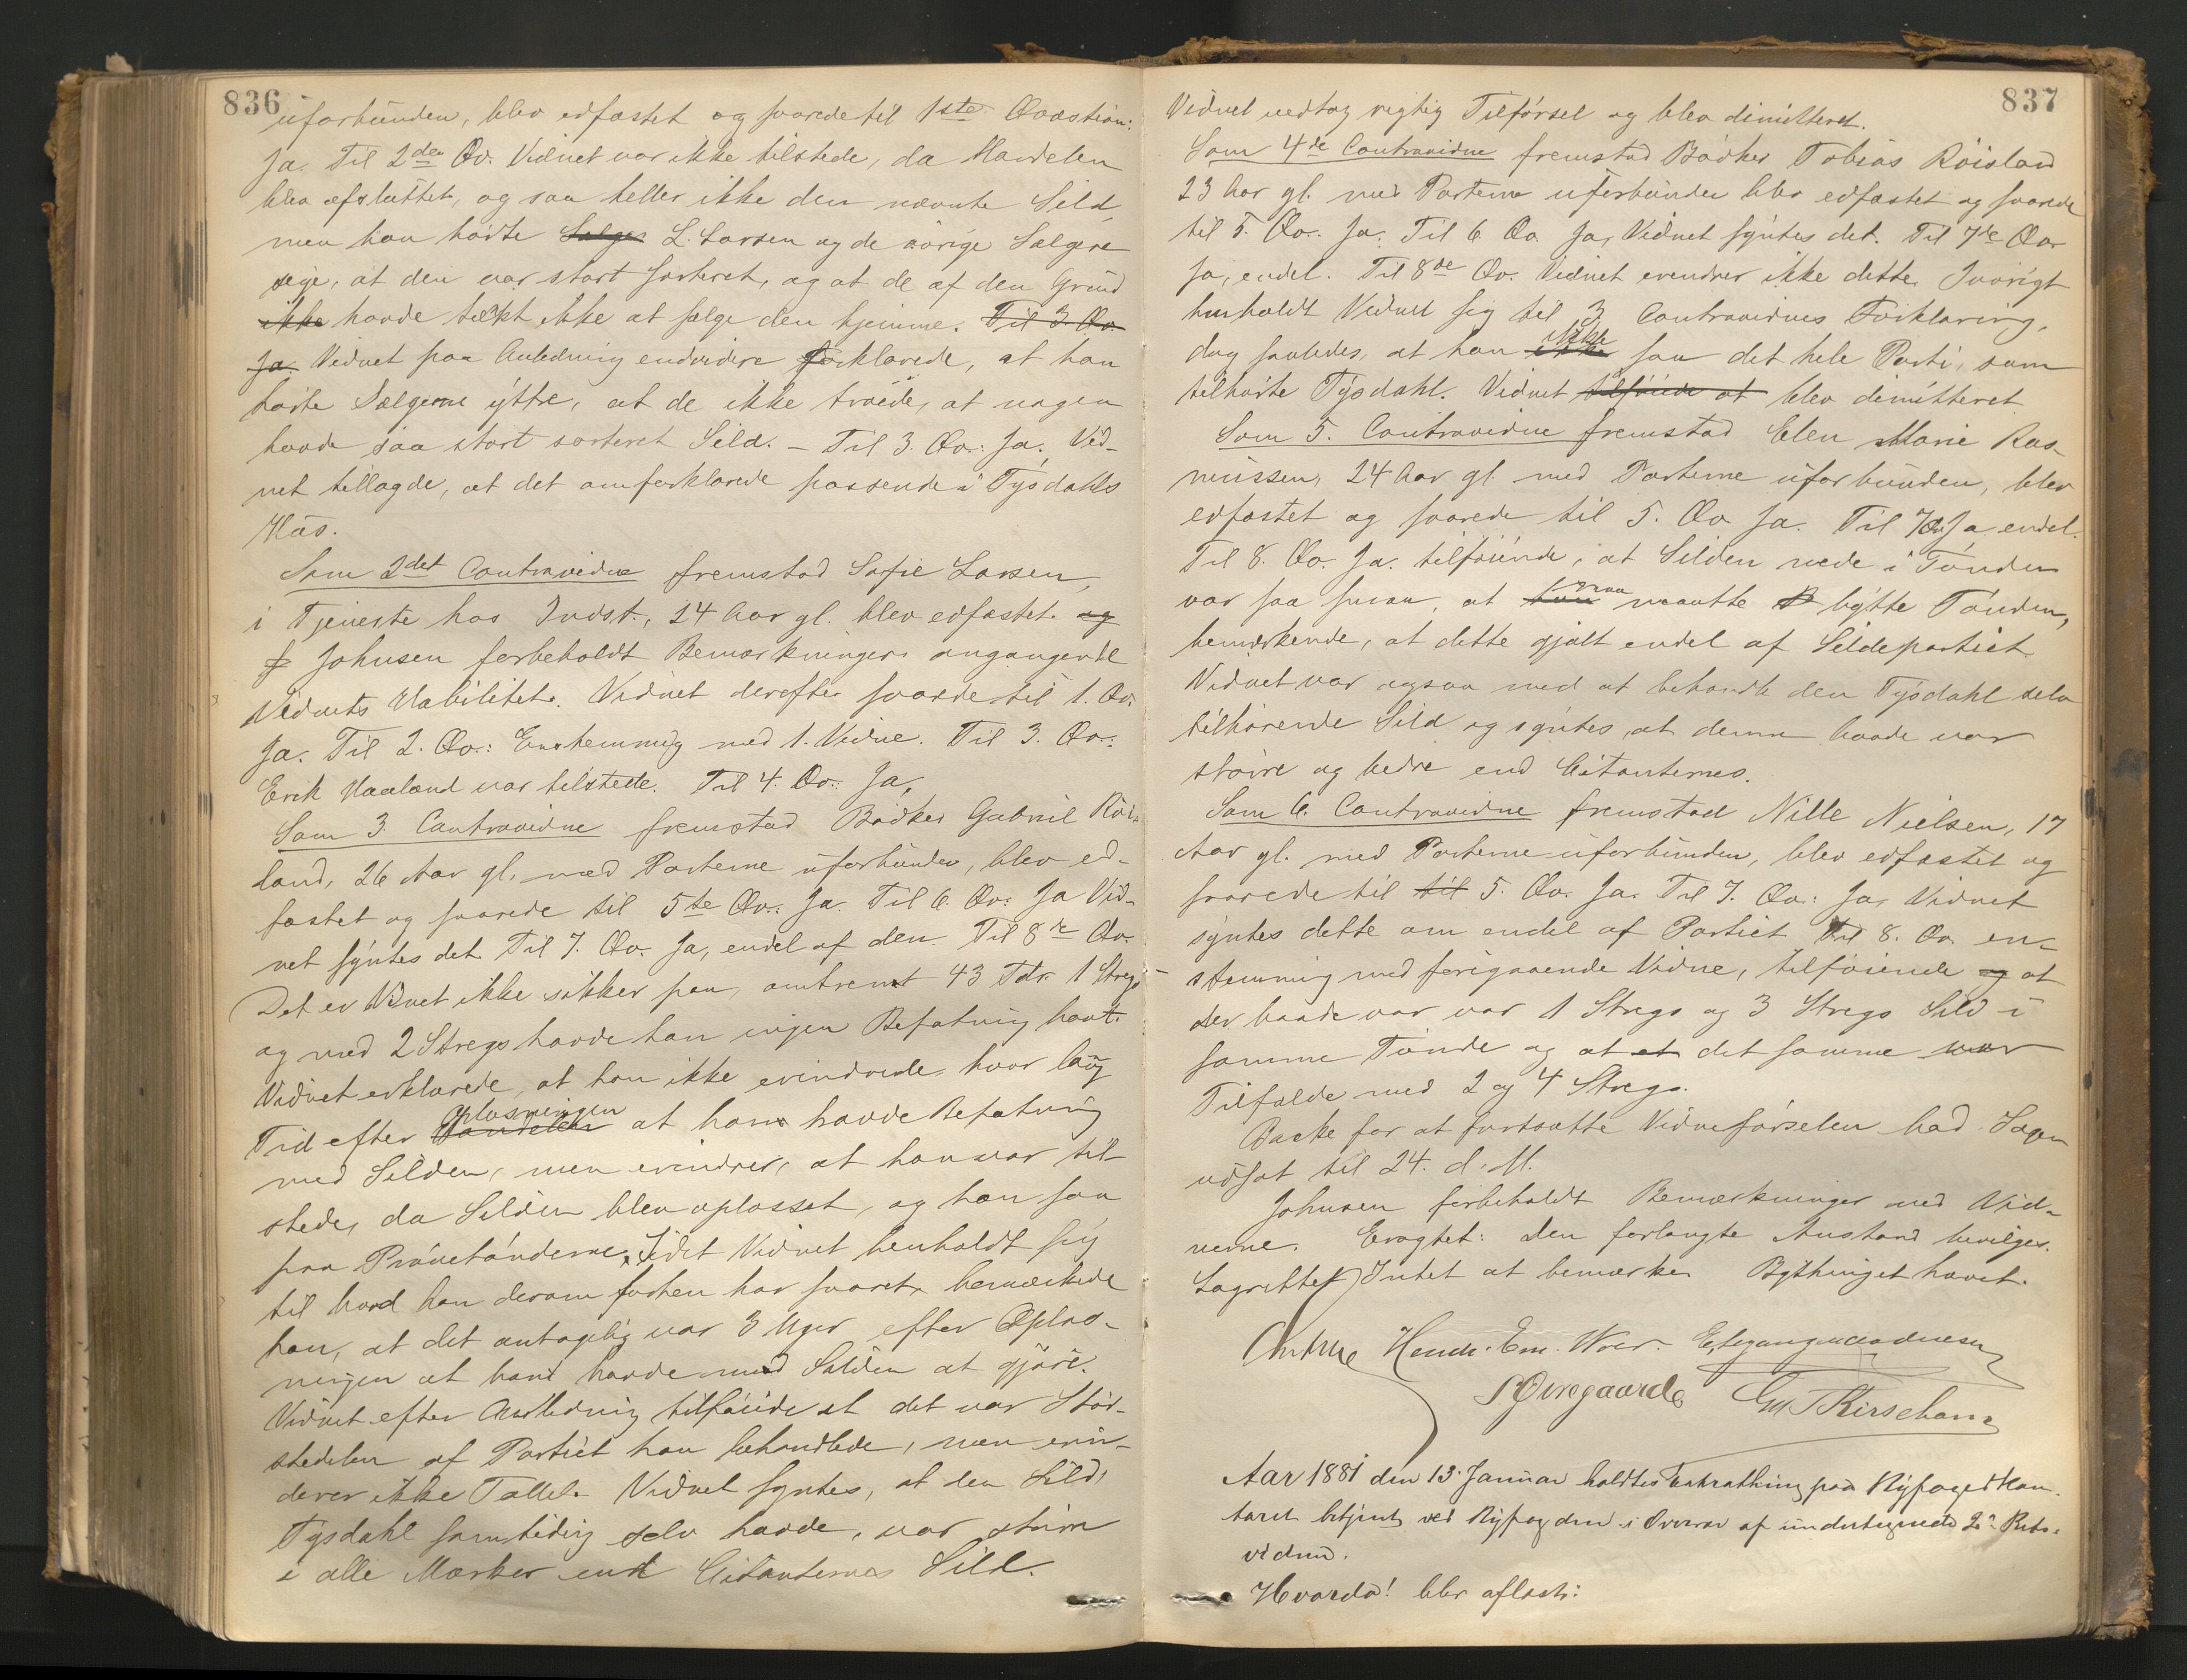 836
uforbunden, blev edfæstet og svarede til 1ste Qvæstion:
Ja. Til 2den Qv. Vidnet var ikke tilstede, da Handelen
blev afsluttet, og saa heller ikke den nævnte Sild,
men han hørte Sælger L. Larsen og de øvrige Sælgere
sige, at den var stort sorteret, og at de af den Grund
ikke havde tækt ikke at sælge den hjemme. Til 3. Qv.
Ja. Vidnet paa Anledning endvidere forklarede, at han
hørte Sælgerne yttre, at de ikke troede, at nogen
havde saa stort sorteret Sild. – Til 3. Qv.: Ja. Vid-
net tillagde, at det omforklarede passerede i Tysdahls
Hus.
Som 2det Contravidne fremstod Sofie Larsen,
i Tjeneste hos Indst., 24 Aar gl. blev edfæstet. og
f Johnsen forbeholdt Bemærkninger angaaende
Vidnets Habilitet. Vidnet derefter svarede til 1. Qv.
Ja. Til 2. Qv.: Enstemmig med 1. Vidne. Til 3. Qv.:
Erik Haaland var tilstede. Til 4. Qv.: Ja.
Som 3. Contravidne fremstod Bødker Gabriel Røis-
land, 26 Aar gl. med Parterne uforbunden, blev ed-
fæstet og svarede til 5te Qv.: Ja. Til 6. Qv.: Ja Vid-
net syntes det. Til 7. Qv. Ja, endel af den. Til 8de Qv.
Det er Vidnet ikke sikker paa, omtrent 43 Tdr. 1 Stregs
og med 2 Stregs havde han ingen Befatning havt.
Vidnet erklærede, at han ikke erindrede hvor lang
Tid efter Handelen oplosningen at han havde Befatning
med Silden, men erindrer, at han var til-
stede, da Silden blev oplosset, og han saa
paa Prøvetønderne. Idet Vidnet henholdt sig
til hvad han derom forhen har svaret, bemærkede
han, at det antagelig var 3 Uger efter Oplos-
ningen at han havde med Silden at gjøre.
Vidnet efter Anledning tilføiede at det var Stør-
stedelen af Partiet han behandlede, men erin-
drer ikke Tallet. Vidnet syntes, at den Sild,
Tysdahl samtidig selv havde, var større
i alle Mærker end Citanternes Sild.
837
Vidnet vedtog rigtig Tilførsel og blev dimitteret.
Som 4de Contravidne fremstod Bødker Tobias Røisland
23 Aar gl. med Parterne uforbunden blev edfæstet og svarede
til 5. Qv. Ja. Til 6. Qv. Ja, Vidnet syntes det. Til 7de Qv.
Ja, endel. Til 8de Qv. Vidnet erindrer ikke dette. Iøvrigt
henholdt Vidnet sig til 3 Contravidnes Forklaring,
dog saaledes, at han ikke ikke saa det hele Parti, som
tilhørte Tysdahl. Vidnet tilføiede at blev dimitteret
Som 5. Contravidne fremstod Elen Marie Ras-
mussen, 24 Aar gl. med Parterne uforbunden, blev
edfæstet og svarede til 5. Qv. Ja. Til 7 Qv. Ja endel.
Til 8. Qv. Ja. tilføiende, at Silden nede i Tønden
var saa smaa, at man maatte bytte Tønden,
bemærkende, at dette gjalt endel af Sildepartiet.
Vidnet var ogsaa med at behandle den Tysdahl selv
tilhørende Sild og syntes, at denne baade var
større og bedre end Citanternes.
Som 6. Contravidne fremstod Nille Nielsen, 17
Aar gl. med Parterne uforbunden, blev edfæstet og
svarede til til 5. Qv. Ja. Til 7. Qv.: Ja, Vidnet
syntes dette om endel af Partiet. Til 8. Qv. en-
stemmig med forigaaende Vidne, tilføiende og at
der baade var var 1 Stregs og 3 Stregs Sild i
samme Tønde og at et det samme var
Tilfælde med 2 og 4 Stregs.
Backe for at fortsætte Vidneførselen bad Sagen
udsat til 24. d. M.
Johnsen forbeholdt Bemærkninger ved Vid-
nerne. Eragtet: den forlangte Anstand bevilges.
Lagrettet Intet at bemærke. Bythinget hævet.
Hendr. Em. Woer.
Aar 1881 den 13. Januar holdtes Extrathing paa Byfogedkon-
toret betjent ved Byfogden i Overvær af undertegnede 2de Rets-
vidner.
Hvorda! blev aflæst: